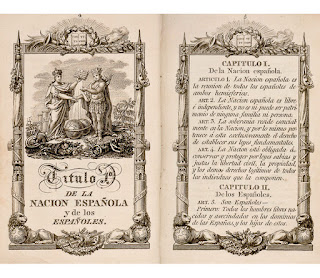 Titulo Iº
DE LA
NACION ESPAÑOLA
y de los
ESPAÑOLES.
CAPITULO I.
De la Nacion española.
ARTICULO 1. La Nacion española es
la reunion de todos los españoles de
ambos hemisferios.
ART. 2. La Nacion española es libre
é independiente, y no es ni puede ser patri-
monio de ninguna familia ni persona.
ART. 3. La soberania reside esencial-
mente en la Nacion, y por lo mismo per-
tenece á esta exclusivamente el derecho
de establecer sus leyes fundamentales.
ART. 4. La Nacion está obligada á
conservar y proteger por leyes sabias y
justas la libertad civil, la propiedad
y los demas derechos legitimos de todos
los individuos que la componen.
CAPITULO II.
De los Españoles.
ART. 5. Son Españoles
Primero: Todos los hombres libres na-
cidos y avecindados en los dominios
de las Españas, y los hijos de estos.